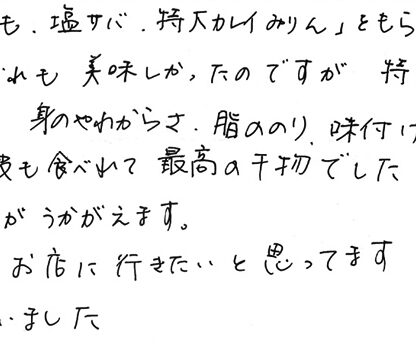 も.塩サバ.特大カレイみりん」をもら
れも 美味しかったのですが 特
身のやわらかさ.脂ののり.味付け
も食べれて 最高の干物でした
が うかがえます。
お店に 行きたいと思ってます
いました